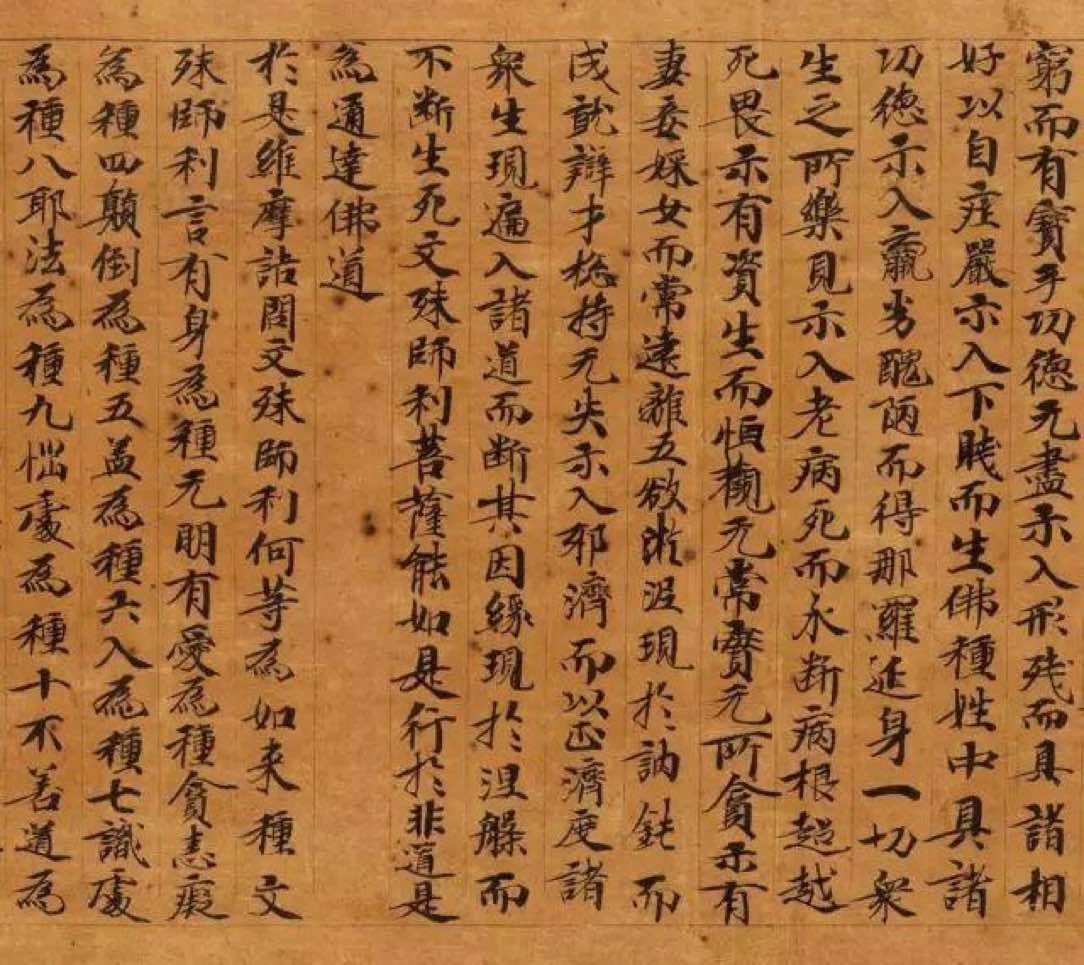 窮而有寶手功德无盡示入形残而具諸相
好以自庄嚴示入下賎而生佛種姓中具諸
功德示入羸劣醜陋而得那羅延身一切衆
生之所樂見示入老病死而永断病根超越
死畏示有資生而恒觀无常實无所貪示有
妻妾婇女而常遠離五欲淤泥現於訥鈍而
成就辯才捴持无失示入邪濟而以正濟度諸
衆生現遍入諸道而断其因縁現於涅槃而
不断生死文殊師利菩薩能如是行於非道是
為通達佛道
於是維摩詰問文殊師利何等為如来種文
殊師利言有身為種无明有愛為種貪恚癡
為種四顛倒為種五盖為種六入為種七識處
為種八耶法為種九惱處為種十不善道為